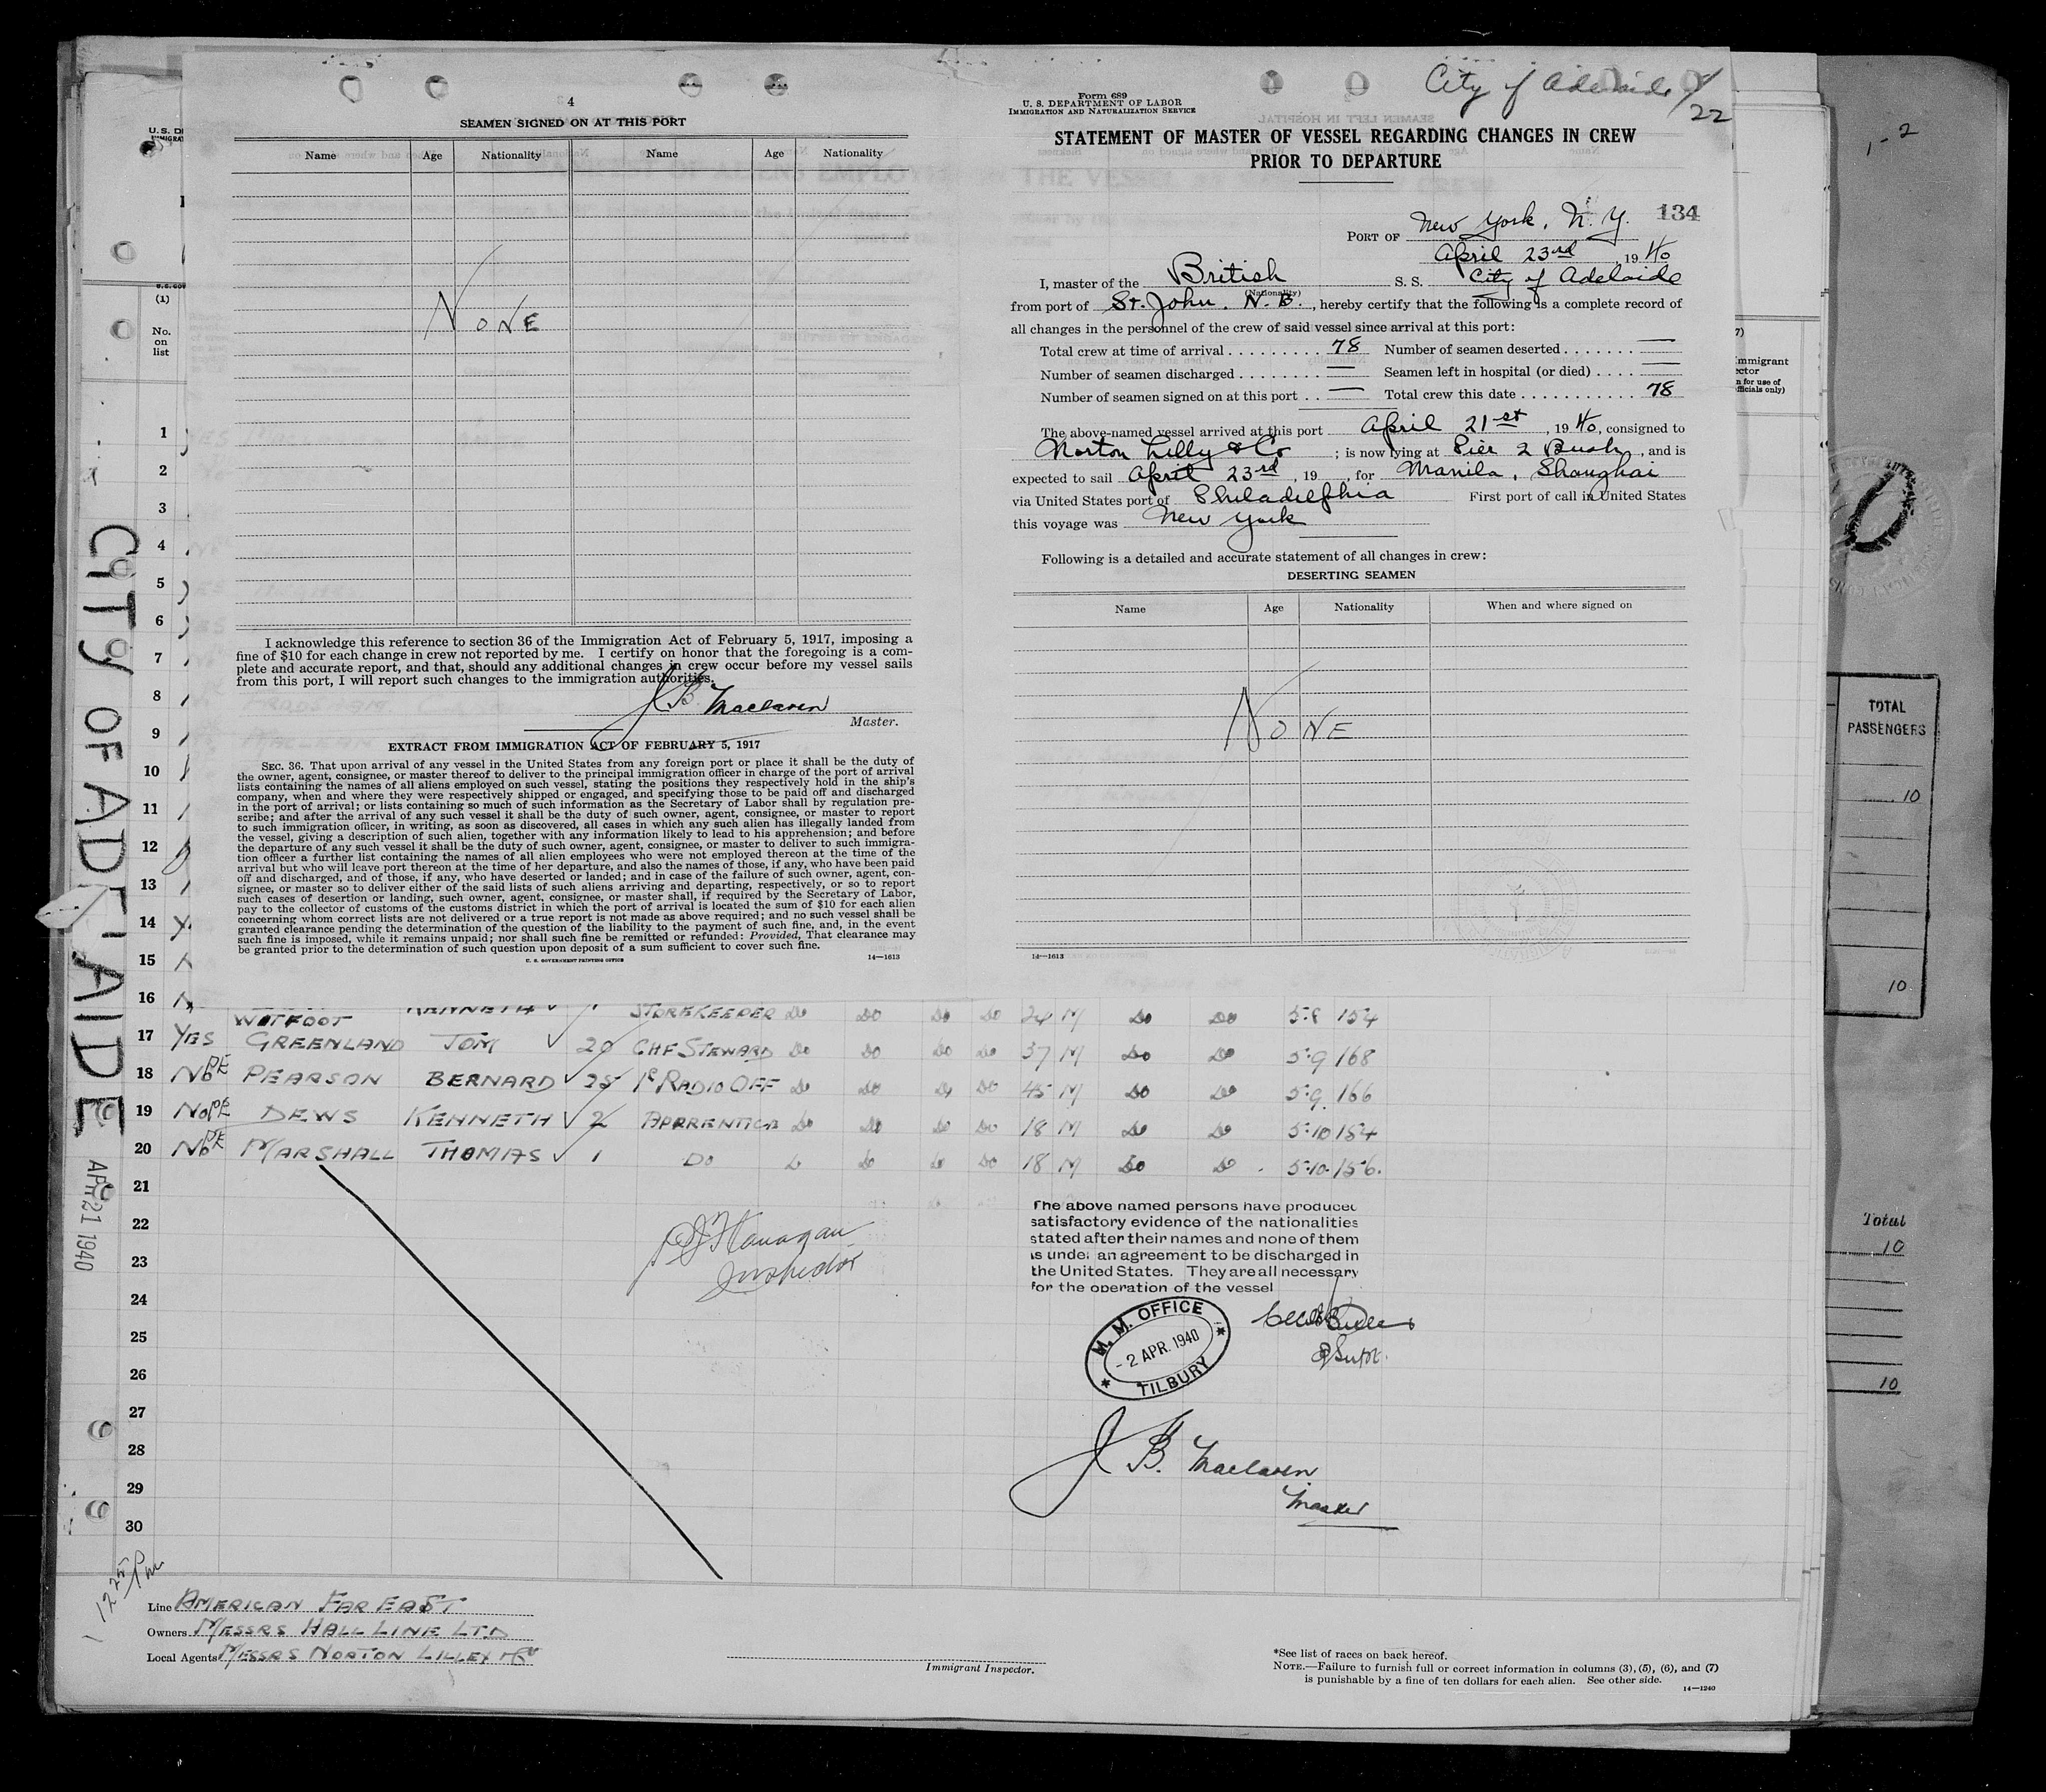 4
SEAMEN SIGNED ON AT THIS PORT
Name Age Nationality Name Age Nationality
NONE
I acknowledge this reference to section 36 of the Immigration Act of February 5, 1917, imposing a
fine of $10 for each change in crew not reported by me. I certify on honor that the foregoing is a com-
plete and accurate report, and that, should any additional changes in crew occur before my vessel sails
from this port, I will report such changes to the immigration authorities.
J B. Maclaren
Master.
EXTRACT FROM IMMIGRATION ACT OF FEBRUARY 5, 1917
SEC. 36. That upon arrival of any vessel in the United States from any foreign port or place it shall be the duty of
the owner, agent, consignee, or master thereof to deliver to the principal immigration officer in charge of the port of arrival
lists containing the names of all aliens employed on such vessel, stating the positions they respectively hold in the ship's
company, when and where they were respectively shipped or engaged, and specifying those to be paid off and discharged
in the port of arrival; or lists containing so much of such information as the Secretary of Labor shall by regulation pre-
scribe; and after the arrival of any such vessel it shall be the duty of such owner, agent, consignee, or master to report
to such immigration officer, in writing, as soon as discovered, all cases in which any such alien has illegally landed from
the vessel, giving a description of such alien, together with any information likely to lead to his apprehension; and before
the departure of any such vessel it shall be the duty of such owner, agent, consignee, or master to deliver to such immigra-
tion officer a further list containing the names of all alien employees who were not employed thereon at the time of the
arrival but who will leave port thereon at the time of her departure, and also the names of those, if any, who have been paid
off and discharged, and of those, if any, who have deserted or landed; and in case of the failure of such owner, agent, con-
signee, or master so to deliver either of the said lists of such aliens arriving and departing, respectively, or so to report
such cases of desertion or landing, such owner, agent, consignee, or master shall, if required by the Secretary of Labor,
pay to the collector of customs of the customs district in which the port of arrival is located the sum of $10 for each alien
concerning whom correct lists are not delivered or a true report is not made as above required; and no such vessel shall be
granted clearance pending the determination of the question of the liability to the payment of such fine, and, in the event
such fine is imposed, while it remains unpaid; nor shall such fine be remitted or refunded: Provided, That clearance may
be granted prior to the determination of such question upon deposit of a sum sufficient to cover such fine.
U. S. GOVERNMENT PRINTING OFFICE 14—1613
City of Adelaide
22
Form 689
U. S. DEPARTMENT OF LABOR
IMMIGRATION AND NATURALIZATION SERVICE
STATEMENT OF MASTER OF VESSEL REGARDING CHANGES IN CREW
PRIOR TO DEPARTURE
134
PORT OF New York, N. Y.
April 23rd, 1940
I, master of the British S. S. City of Adelaide
(Nationality)
from port of St. John. N. B., hereby certify that the following is a complete record of
all changes in the personnel of the crew of said vessel since arrival at this port:
Total crew at time of arrival 78 Number of seamen deserted —
Number of seamen discharged — Seamen left in hospital (or died) —
Number of seamen signed on at this port — Total crew this date 78
The above-named vessel arrived at this port April 21st, 1940, consigned to
Norton Lilly & Co; is now lying at Pier 2 Bush, and is
expected to sail April 23rd, 19 , for Manila, Shanghai
via United States port of Philadelphia First port of call in United States
this voyage was New York
Following is a detailed and accurate statement of all changes in crew:
DESERTING SEAMEN
Name Age Nationality When and where signed on
NONE
14—1613
(1)
No.
on
list
1
2
3
4
5
6
7
8
9
10
11
12
13
14
15
16 KENNETH STOREKEEPER Do Do Do Do 24 M Do Do 5.8 154
WOTFOOT
17 YES GREENLAND TOM 20 CHF STEWARD Do Do Do Do 37 M Do Do 5.9 168
18 No PE PEARSON BERNARD 25 1st RADIO OFF Do Do Do Do 45 M Do Do 5.9. 166
19 No PE DEWS KENNETH 2 APPRENTICE Do Do Do Do 18 M Do Do 5.10 154
20 No PE MARSHALL THOMAS 1 Do Do Do Do Do 18 M Do Do 5.10. 156.
21
22
23
24
25
26
27
28
29
30
Flanagan
Inspector
The above named persons have produced
satisfactory evidence of the nationalities
stated after their names and none of them
is under an agreement to be discharged in
the United States. They are all necessary
for the operation of the vessel
M. M. OFFICE
- 2 APR. 1940
TILBURY
J B. Maclaren
Master
CITY OF ADELAIDE
APR 21 1940
12 25 Pm
Line AMERICAN FAR EAST
Owners MESSRS HALL LINE LTD
Local Agents MESSRS NORTON LILLEY & Co
Immigrant Inspector.
*See list of races on back hereof.
NOTE.—Failure to furnish full or correct information in columns (3), (5), (6), and (7)
is punishable by a fine of ten dollars for each alien. See other side.
14—1240
TOTAL
PASSENGERS
10
10
Total
10
10